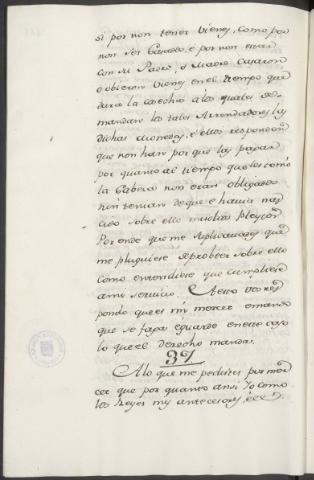 si por non tener vienes, como por
non ser casados, e por non estar
con su Padre, o Madre casaron
o obieron vienes en el tiempo que
dura la cosecha a los quales de-
mandan los tales Arrendadores las
dichas monedas, e ellos responden
que non han por que las pagar
por quanto al tiempo que les tomó
la Cabeza non eran obligados
nin tenian de que e havia nas-
cido sobre ello muchos pleytos
Por ende que me suplicavades que
me pluguiese de probeer sobre ello
como entendiese que cumpliese
a mi servicio. A esto vos res-
pondo que es mi merced e mando
que se faga e guarde en este caso
lo que el derecho manda.
37
A lo que me pedistes por mer-
ced que por quanto ansi Yo como
los Reyes mis antecesores, &c.